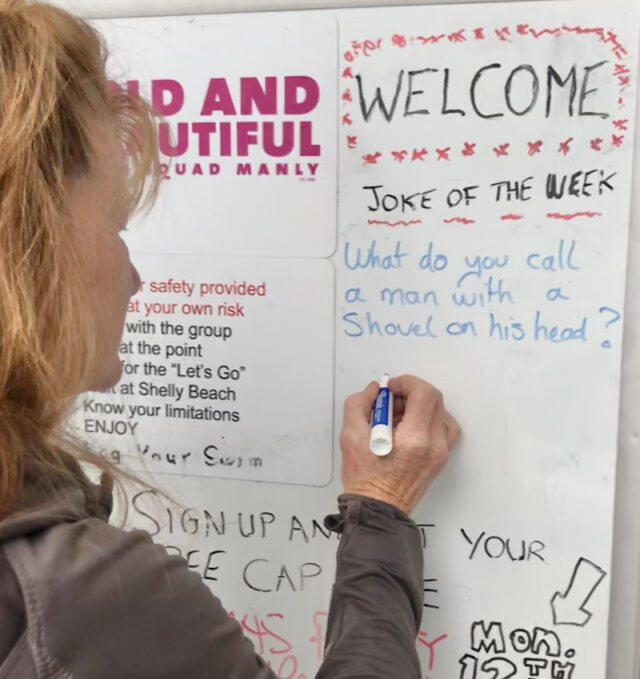 LD AND
UTIFUL
QUAD MANLY
WELCOME
JOKE OF THE WEEK
What do you call
a man with a
Shovel on his head?
r safety provided
at your own risk
with the group
at the point
for the "Let's Go"
at Shelly Beach
Know your limitations
ENJOY
Your Swim
SIGN UP AN YOUR
EE CAP
Mon.
12TH